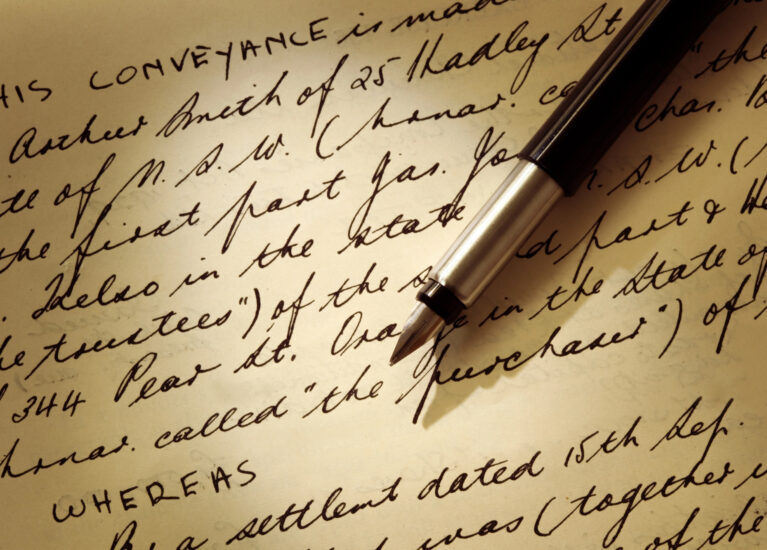 HIS CONVEYANCE is made
Arthur Smith of 25 Hadley St
te of N.S.W. (hrnar. "the
the first part Jas. chas.
. Kelso in the state . S.W. (
he trustees") of the s d part & He
344 Pear St. Orange in the State of
hrnar. called "the purchaser") of
WHEREAS
By a settlemt dated 15th Sep.
was (together
of the